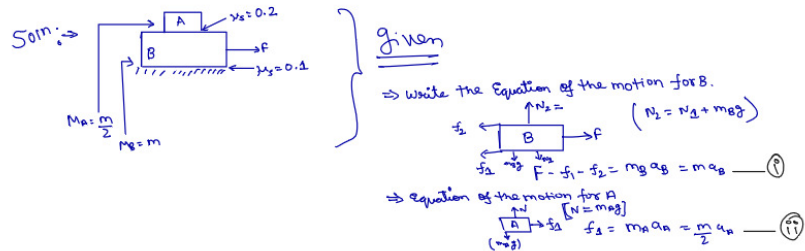 Soln:→
A
μs=0.2
B
→F
μs=0.1
MA=m/2
MB=m
given
⇒ Write the Equation of the motion for B.
N2=
(N2 = N1 + mBg)
f2
B
→F
f1
mBg
F - f1 - f2 = mB aB = m aB —— (i)
⇒ Equation of the motion for A
N
[N = mAg]
A
→f1
(mAg)
f1 = mA aA = m/2 aA —— (ii)